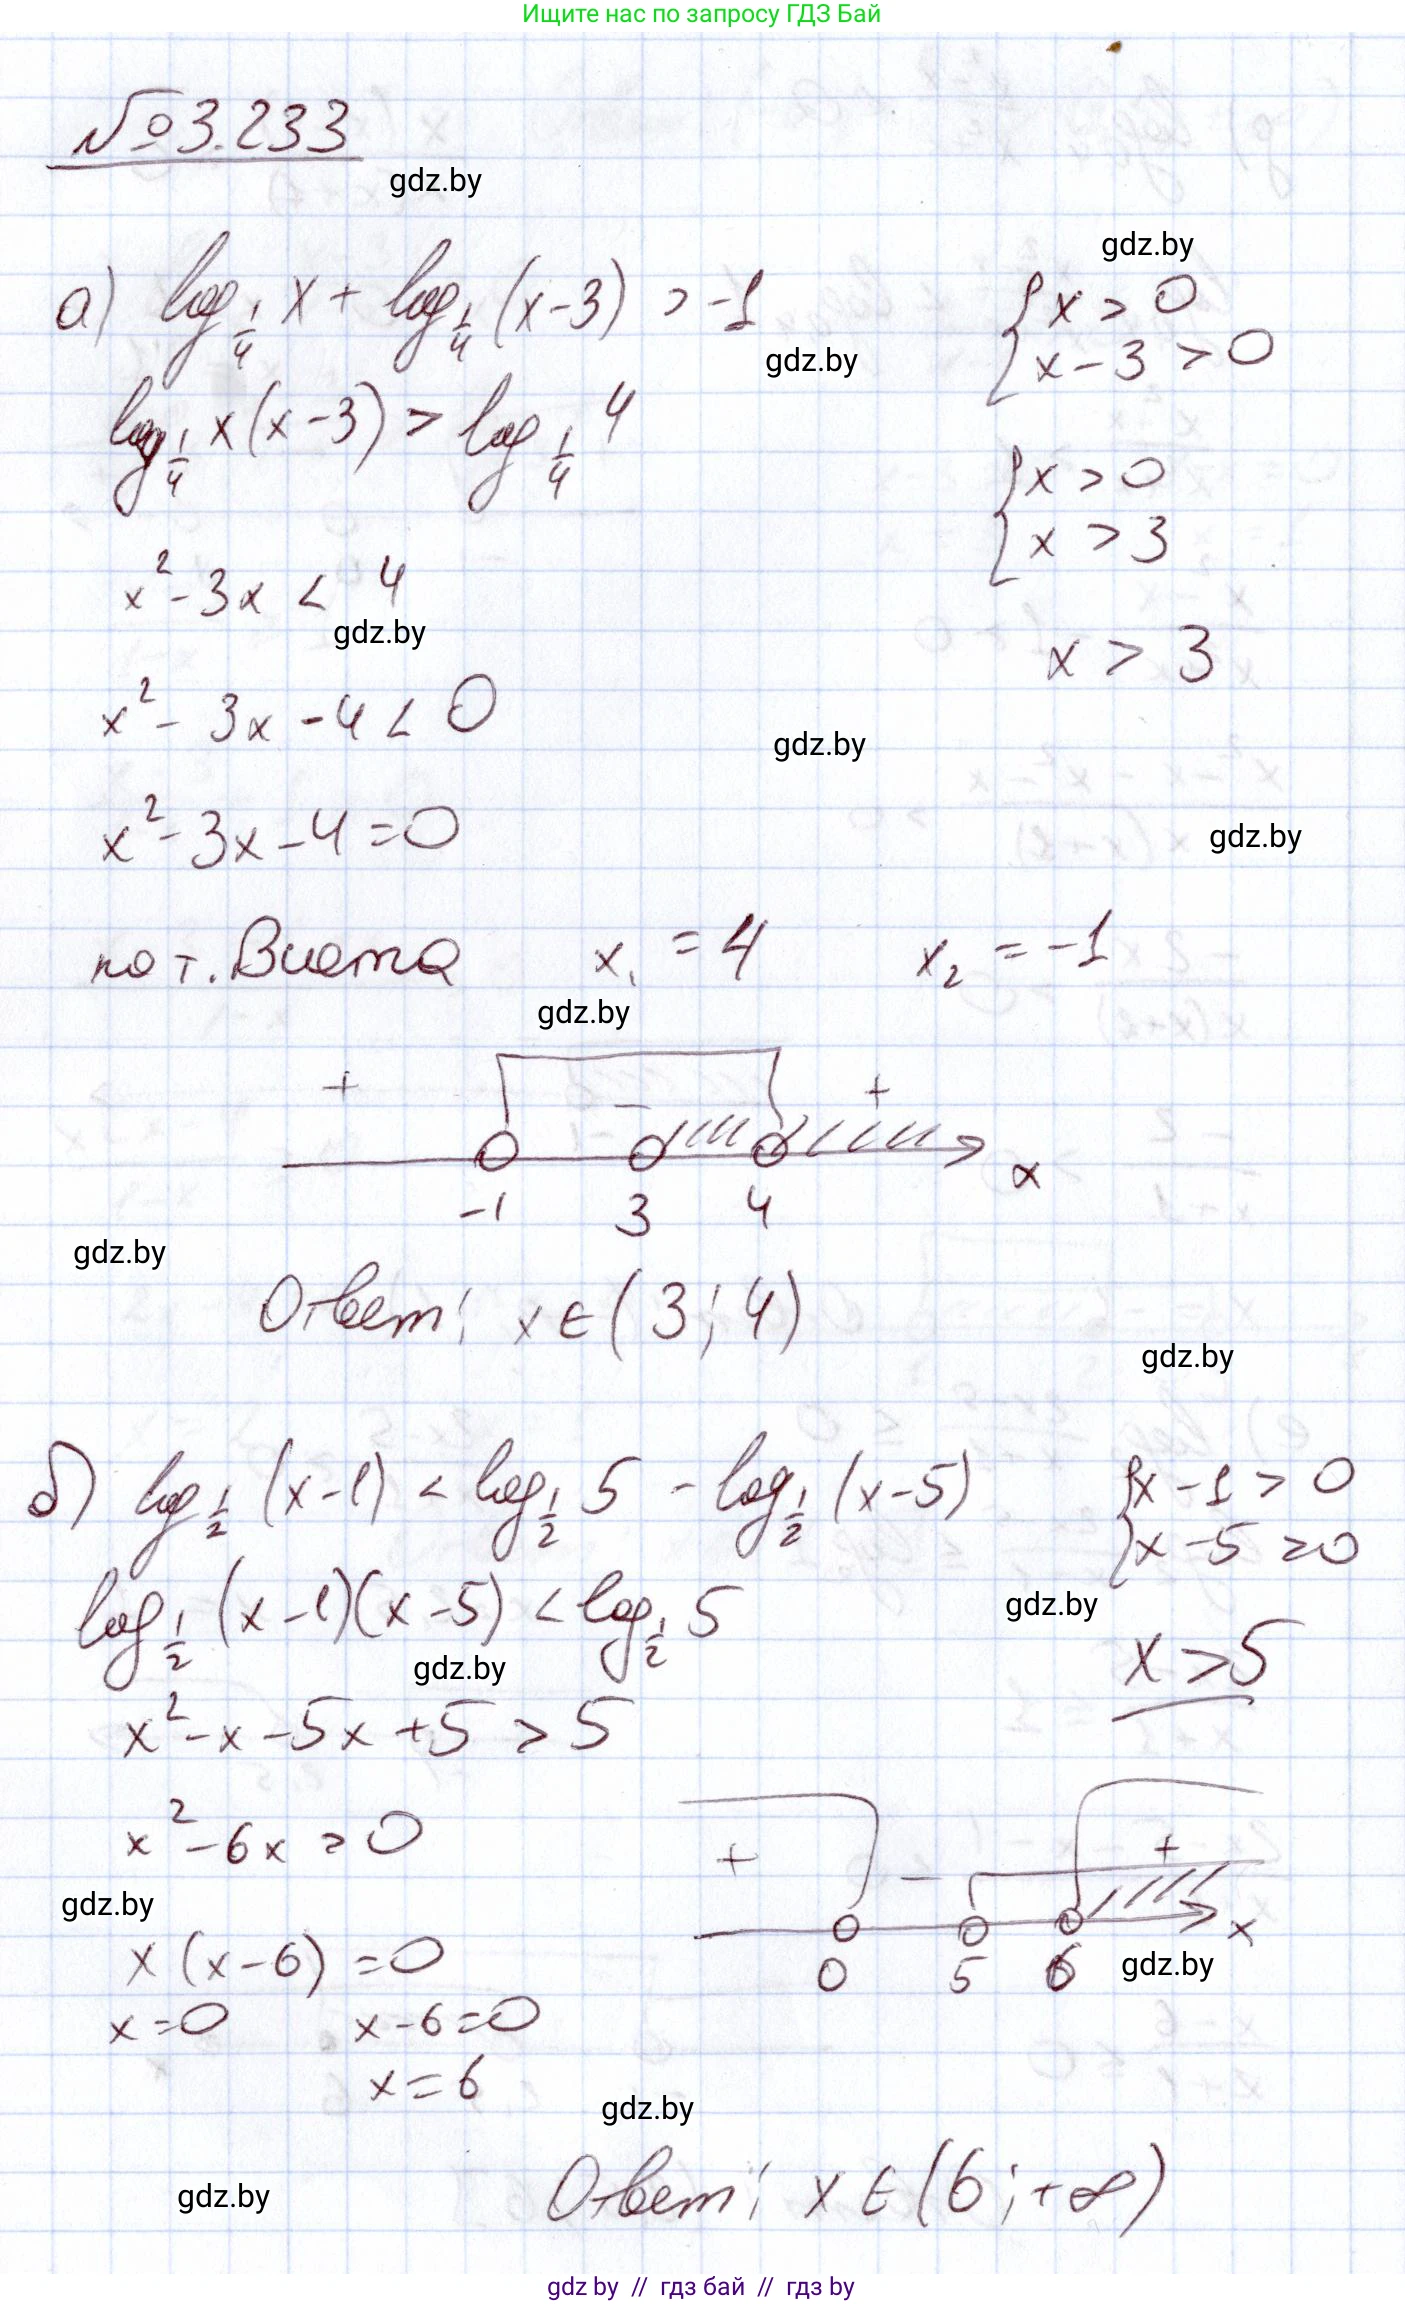 Ищите нас по запросу ГДЗ Бай
№3.233
gdz.by
gdz.by
а) log_{1/4} x + log_{1/4} (x-3) > -1
{ x > 0
x - 3 > 0
gdz.by
log_{1/4} x(x-3) > log_{1/4} 4
{ x > 0
x > 3
x² - 3x < 4
gdz.by
x > 3
x² - 3x - 4 < 0
gdz.by
x² - 3x - 4 = 0
gdz.by
по т. Виета x₁ = 4 x₂ = -1
gdz.by
+ - +
-1 3 4 x
gdz.by
Ответ: x ∈ (3; 4)
gdz.by
б) log_{1/2} (x-1) < log_{1/2} 5 - log_{1/2} (x-5)
{ x - 1 > 0
x - 5 > 0
gdz.by
log_{1/2} (x-1)(x-5) < log_{1/2} 5
gdz.by
x > 5
x² - x - 5x + 5 > 5
x² - 6x > 0
+ - +
0 5 6 x
gdz.by
gdz.by
x (x-6) = 0
x = 0 x - 6 = 0
x = 6
gdz.by
Ответ: x ∈ (6; +∞)
gdz.by
gdz by // гдз бай // гдз by